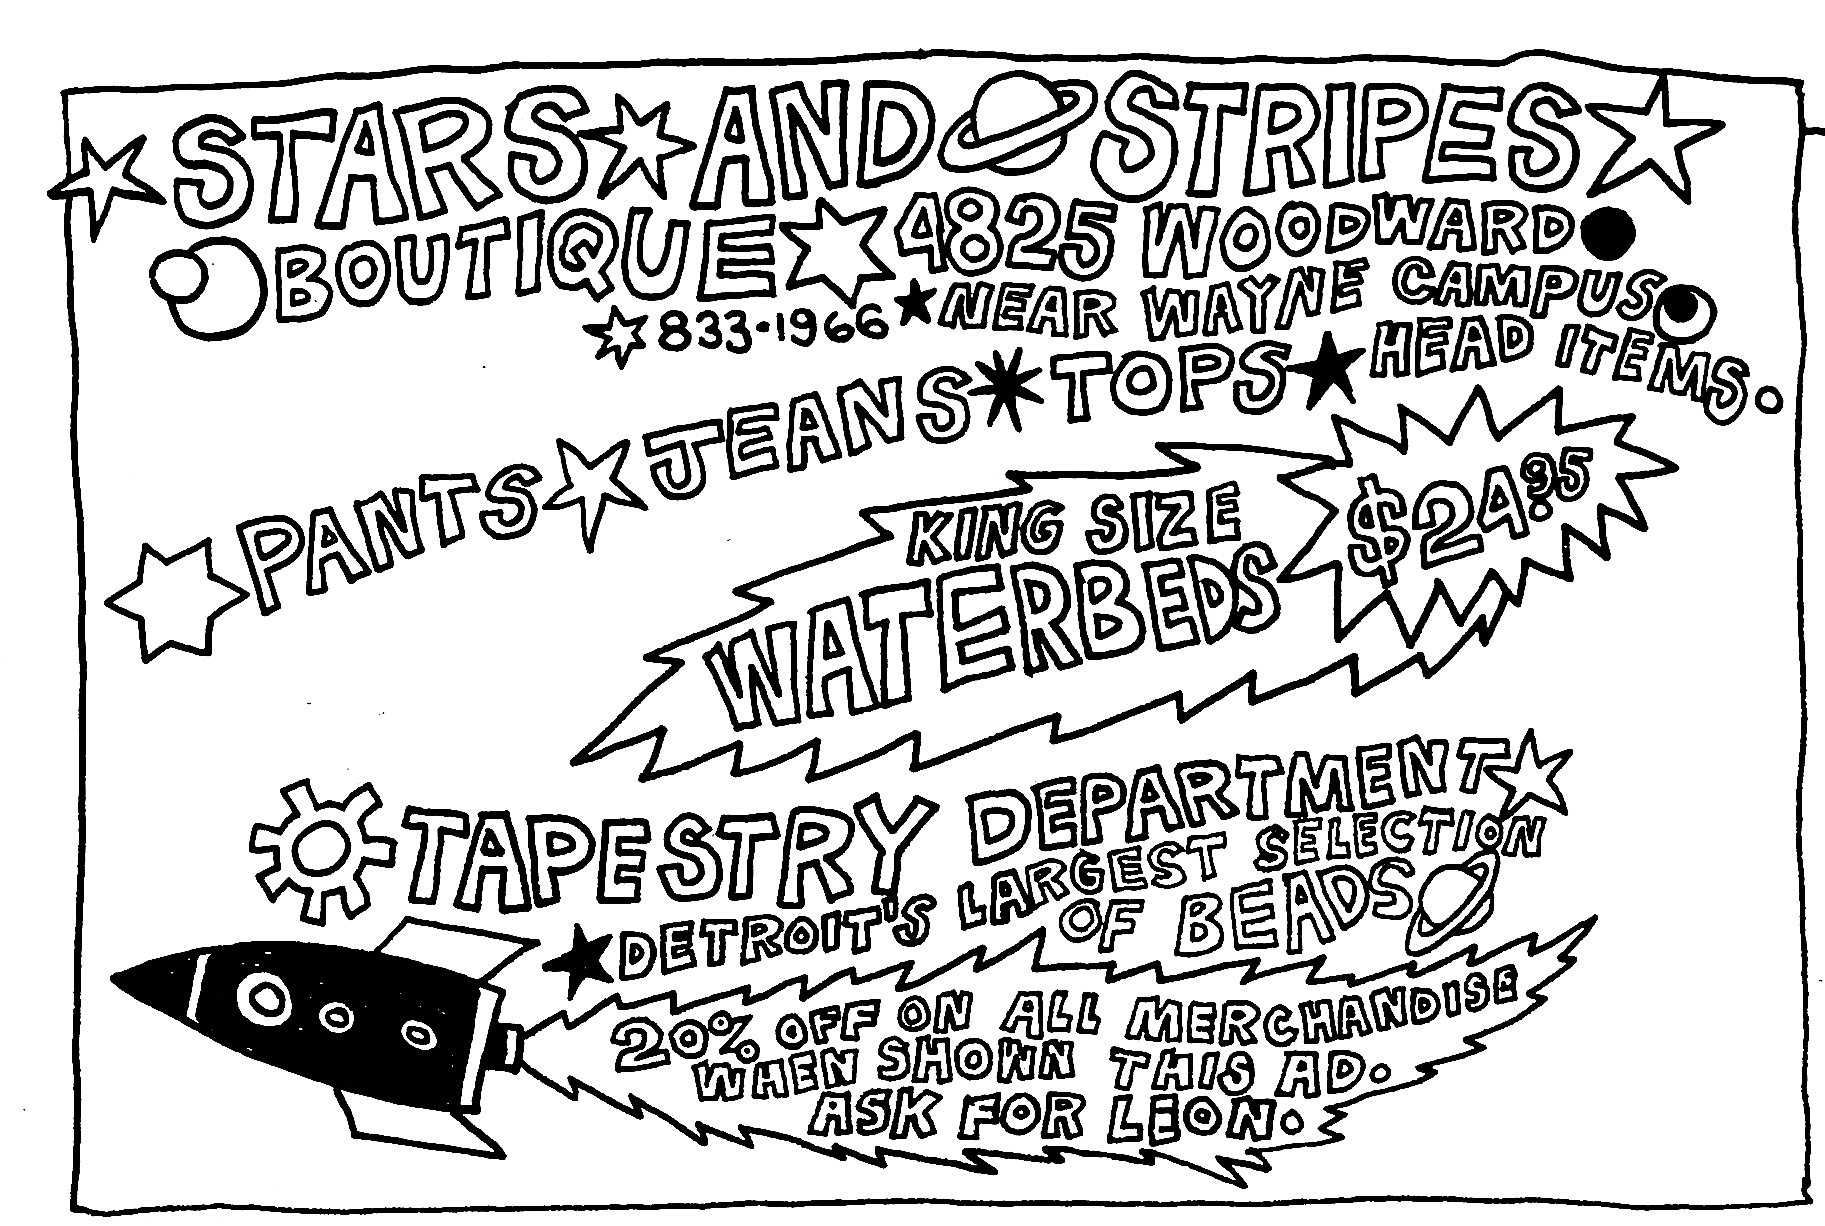 STARS AND STRIPES
BOUTIQUE 4825 WOODWARD
833-1966 NEAR WAYNE CAMPUS
PANTS JEANS TOPS HEAD ITEMS.
KING SIZE
WATERBEDS $24.95
TAPESTRY DEPARTMENT
DETROIT'S LARGEST SELECTION
OF BEADS
20% OFF ON ALL MERCHANDISE
WHEN SHOWN THIS AD.
ASK FOR LEON.